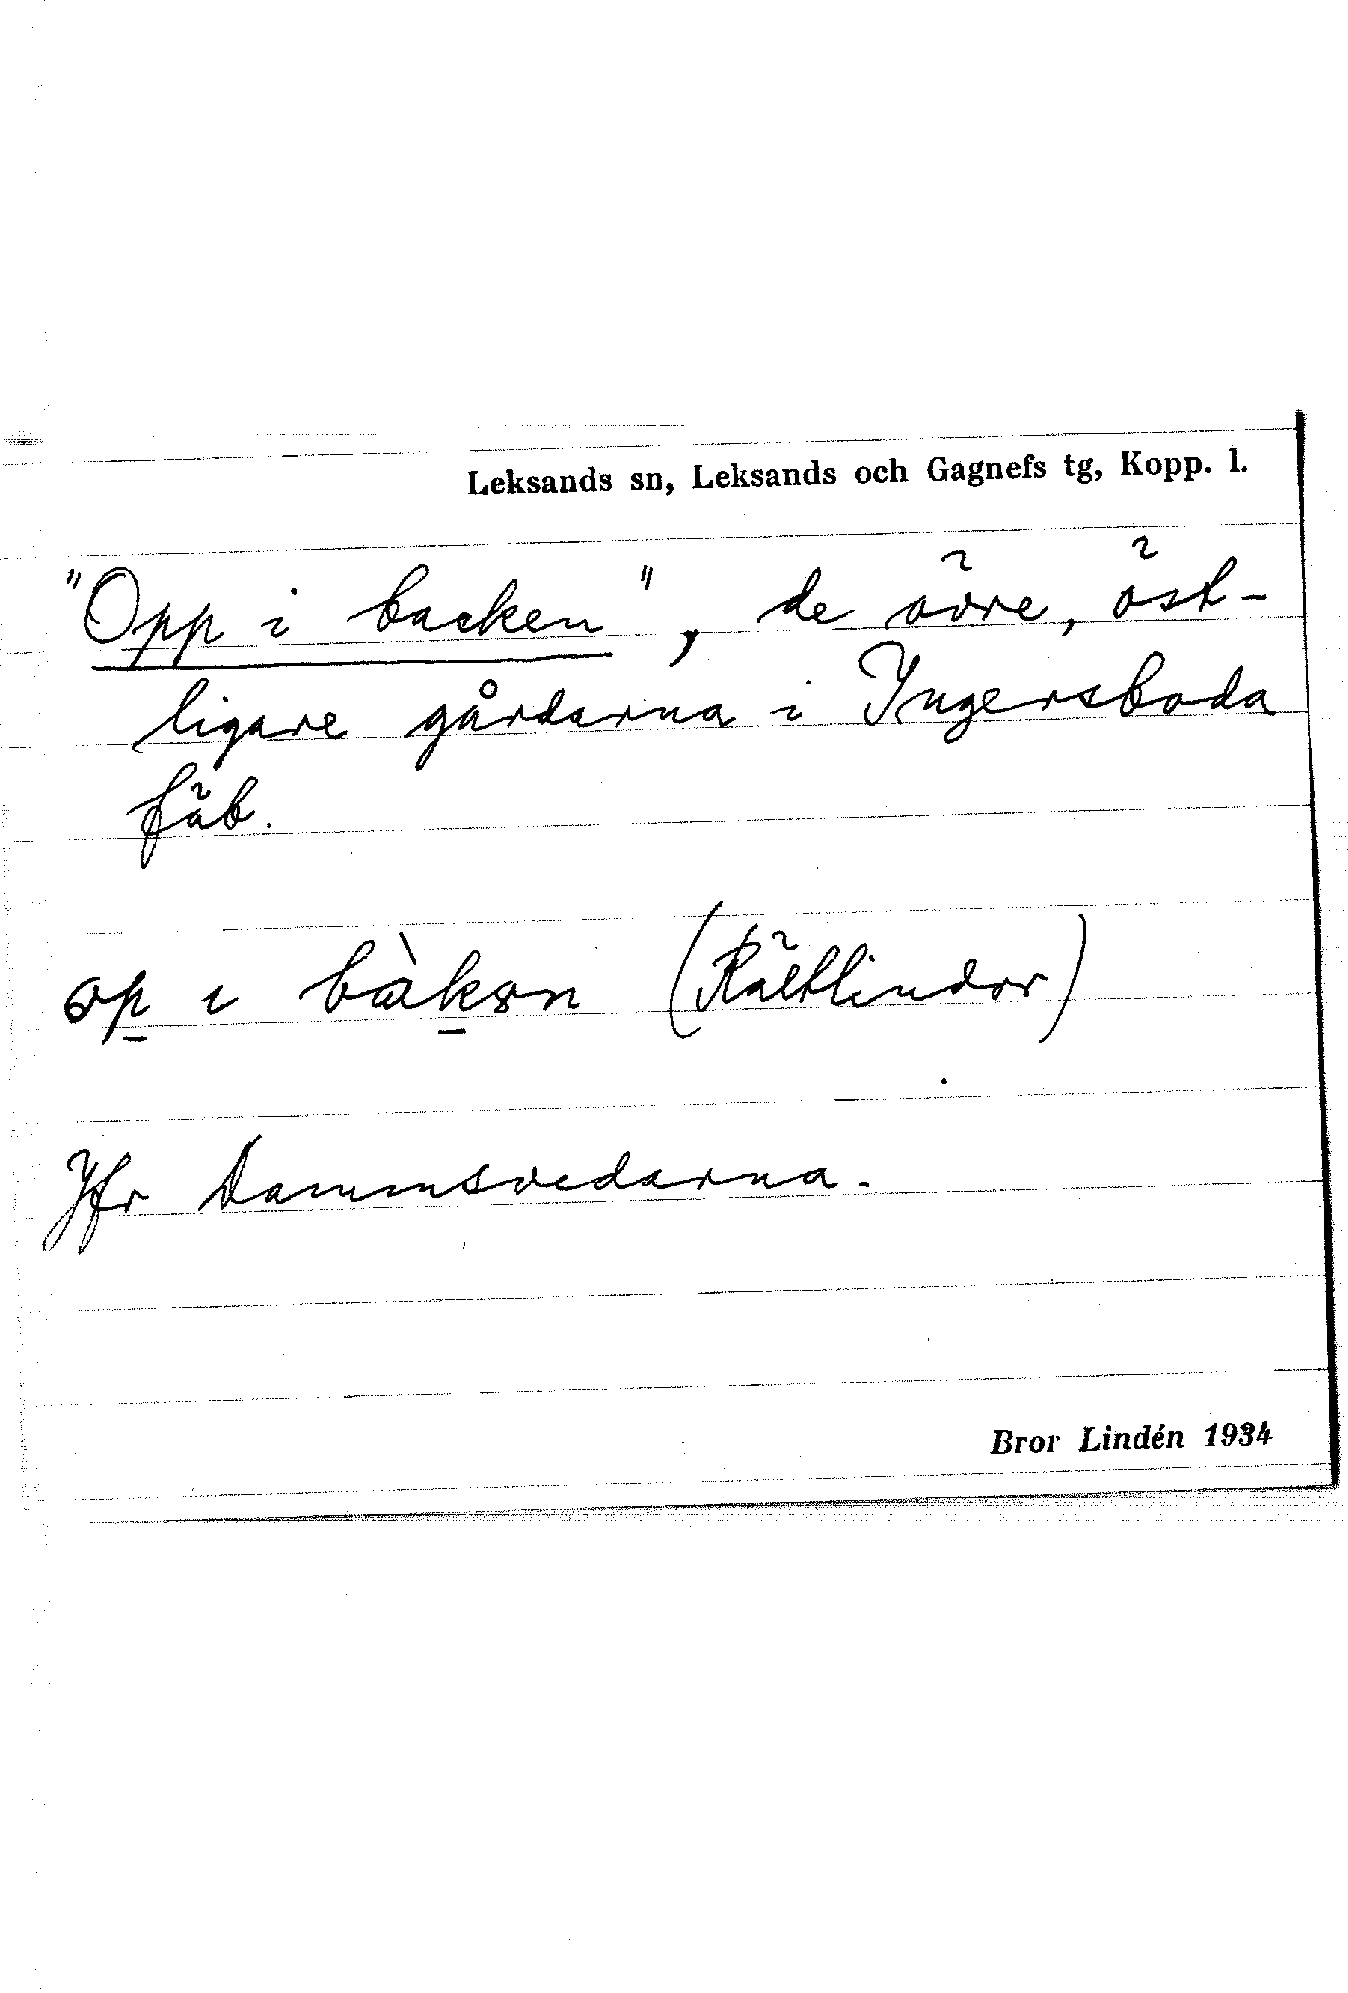 Leksands sn, Leksands och Gagnefs tg, Kopp. l.
"Opp i backen", de övre, öst-
ligare gårdarna i Ingersboda
fäb.
op i bàkən (Rältlindor)
Jfr Dammsvedarna.
Bror Lindén 1934